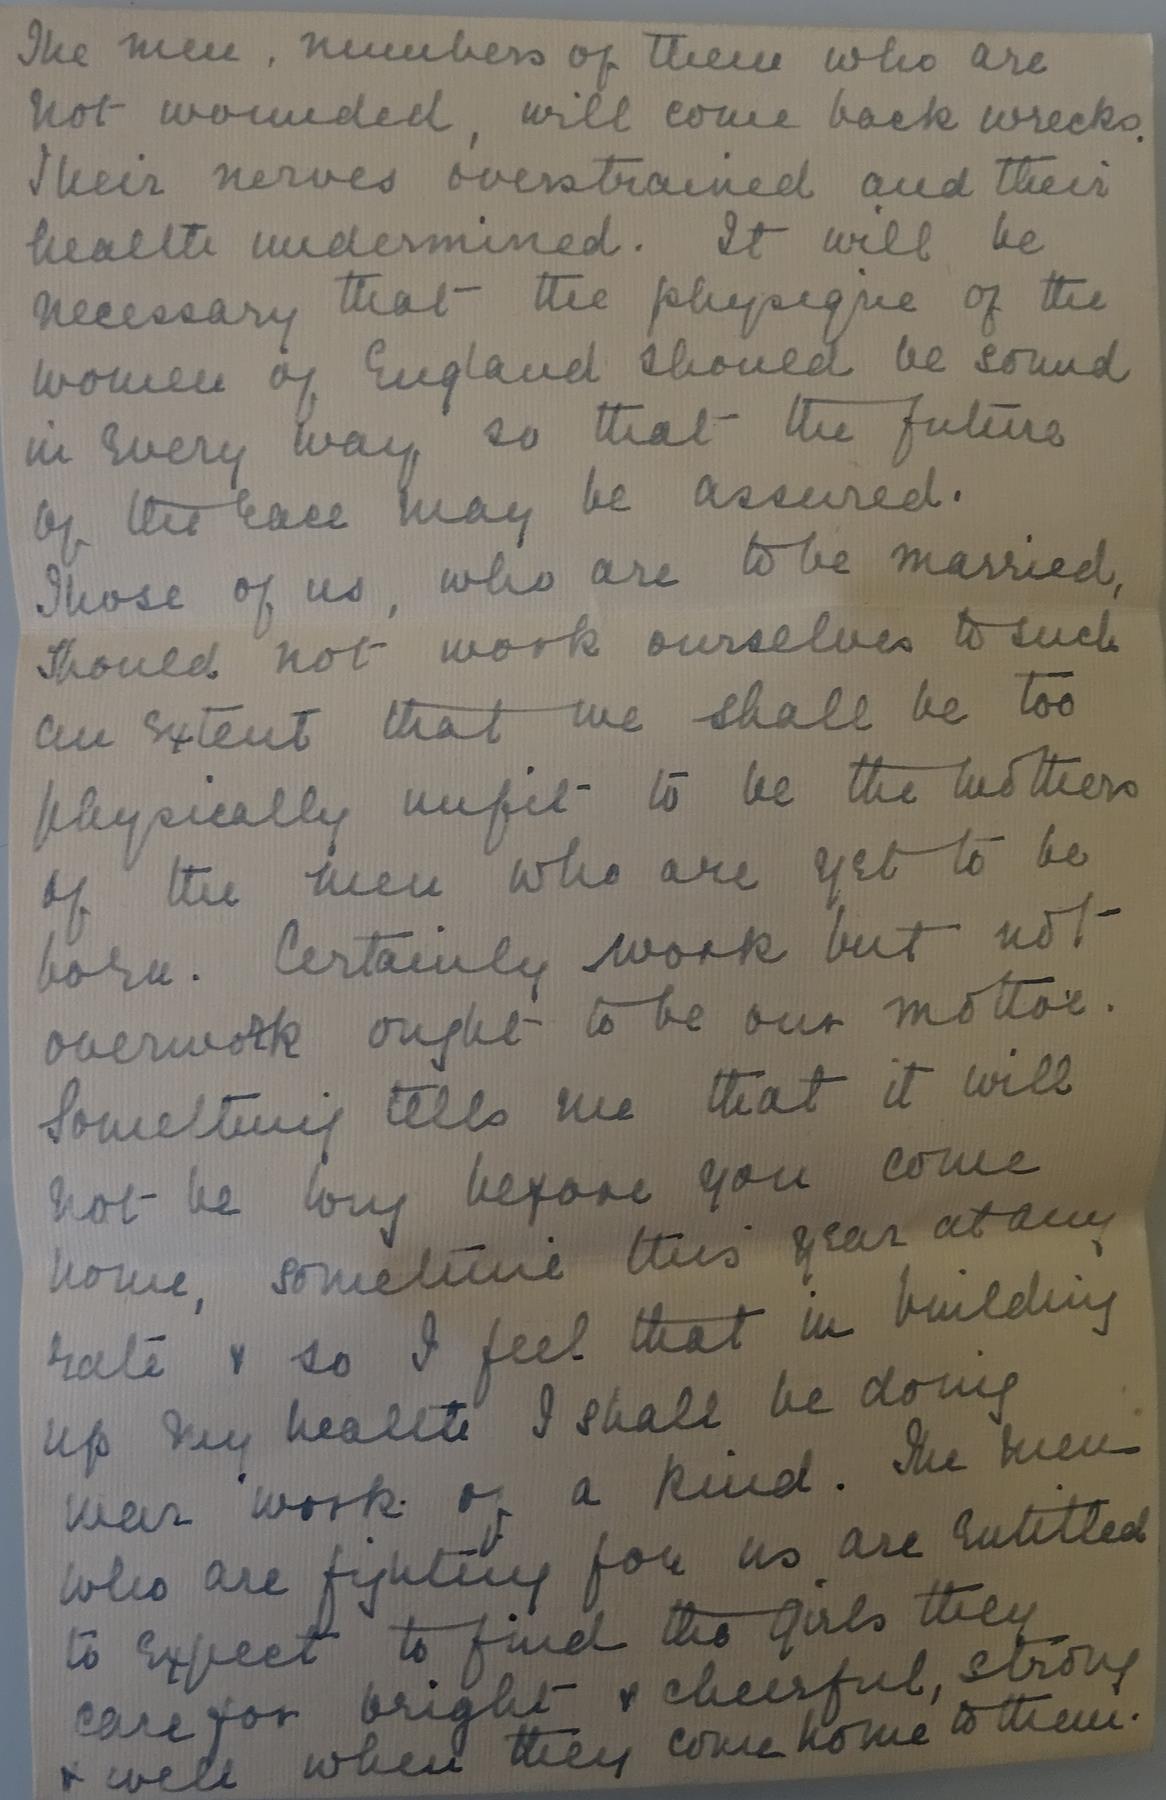 The men, numbers of them who are
not wounded, will come back wrecks.
Their nerves overstrained and their
health undermined. It will be
necessary that the physique of the
women of England should be sound
in every way so that the future
of the race may be assured.
Those of us, who are to be married,
should not work ourselves to such
an extent that we shall be too
physically unfit to be the mothers
of the men who are yet to be
born. Certainly work but not
overwork ought to be our mottoe.
Something tells me that it will
not be long before you come
home, sometime this year at any
rate & so I feel that in building
up my health I shall be doing
war work of a kind. The men
who are fighting for us are entitled
to expect to find the girls they
care for bright & cheerful, strong
& well when they come home to them.